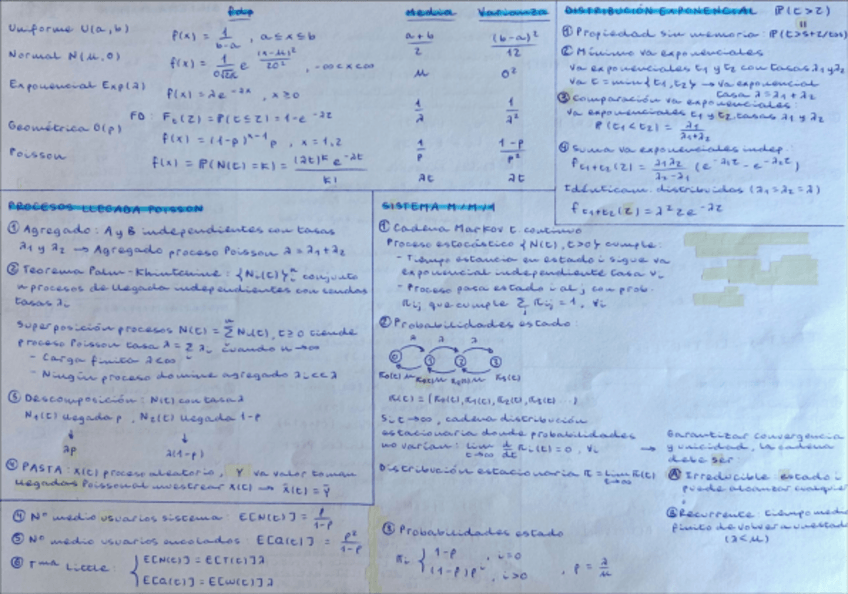 fdp Media Varianza
Uniforme U(a,b) f(x) = 1/(b-a), a≤x≤b (a+b)/2 (b-a)²/12
Normal N(μ,σ) f(x) = 1/(σ√2π) e^((x-μ)²/2σ²), -∞<x<∞ μ σ²
Exponencial Exp(λ) f(x) = λe^-λx, x≥0 1/λ 1/λ²
FD: Fz(z) = P(t≤z) = 1-e^-λz
Geométrica G(p) f(x) = (1-p)^(x-1) p, x=1,2 1/p (1-p)/p²
Poisson f(x) = P(N(t)=k) = (λt)^k e^-λt / k! λt λt
DISTRIBUCIÓN EXPONENCIAL P(t>z)
① Propiedad sin memoria: P(t>s+z/t>s)
② Mínimo va exponenciales
va exponenciales t1 y t2 con tasas λ1 y λ2
va t = min{t1,t2} → va exponencial
tasa λ = λ1+λ2
③ Comparación va exponenciales:
va exponenciales t1 y t2 tasas λ1 y λ2
P(t1<t2) = λ1/(λ1+λ2)
④ Suma va exponenciales indep.:
f t1+t2(z) = λ1λ2/(λ2-λ1) (e^-λ1z - e^-λ2z)
Idénticam. distribuidas (λ1=λ2=λ)
f t1+t2(z) = λ²ze^-λz
PROCESOS LLEGADA POISSON
① Agregado: A y B independientes con tasas
λ1 y λ2 → Agregado proceso Poisson λ=λ1+λ2
② Teorema Palm-Khintchine: {Ni(t)}ⁿi conjunto
n procesos de llegada independientes con sendas
tasas λi
Superposición procesos N(t) = Σ Ni(t), t≥0 tiende
proceso Poisson tasa λ = Σ λi cuando n→∞
- Carga finita λ<∞
- Ningún proceso domine agregado λi<<λ
③ Descomposición: N(t) con tasa λ
N1(t) llegada p, N2(t) llegada 1-p
↓ ↓
λp λ(1-p)
④ PASTA: X(t) proceso aleatorio, Y va valor toman
llegadas Poisson al muestrear X(t) → X̄(t) = Ȳ
SISTEMA M/M/1
① Cadena Markov t continuo
Proceso estocástico {N(t), t>0} cumple:
- Tiempo estancia en estado i sigue va
exponencial independiente tasa vi
- Proceso pasa estado i al j con prob.
Rij que cumple Σj Rij = 1, ∀i
② Probabilidades estado:
λ λ λ
0 1 2 3
π0(t) π1(t)μ π2(t)μ π3(t)
π(t) = (π0(t), π1(t), π2(t), π3(t) ...)
Si t→∞, cadena distribución
estacionaria donde probabilidades
no varían: lim t→∞ d/dt πi(t) = 0, ∀i →
Distribución estacionaria π = lim t→∞ π(t)
Garantizar convergencia
y unicidad, la cadena
debe ser
Ⓐ Irreducible estado i
puede alcanzar cualquier
Ⓑ Recurrente tiempo medio
finito de volver a un estado
(λ<μ)
③ Probabilidades estado
πi { 1-p, i=0
(1-p)pⁱ, i>0 , p = λ/μ
④ Nº medio usuarios sistema: E[N(t)] = p/(1-p)
⑤ Nº medio usuarios encolados: E[Q(t)] = p²/(1-p)
⑥ Tma Little: { E[N(t)] = E[T(t)]λ
E[Q(t)] = E[W(t)]λ